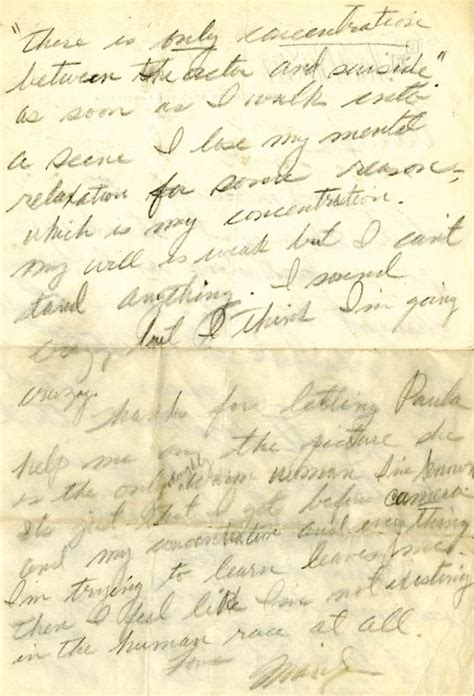 "There is only concentration
between the actor and suiside"
as soon as I walk into
a scene I lose my mental
relaxation for some reason,
which is my concentration.
my will is weak but I can't
stand anything. I sound
crazy but I think I'm going
crazy.
Thanks for letting Paula
help me on the picture she
is the only warm woman I've known
Its just that I get before camera
and my concentration and everything
I'm trying to learn leaves me.
then I feel like I'm not existing
in the human race at all.
Love